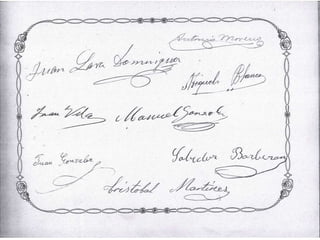 Antonio Moreno
Juan Lara Dominguez
Miguel Blanco
Juan Vela Manuel Gonzalez
Juan Gonzalez
Salvador Barberan
Cristobal Martinez